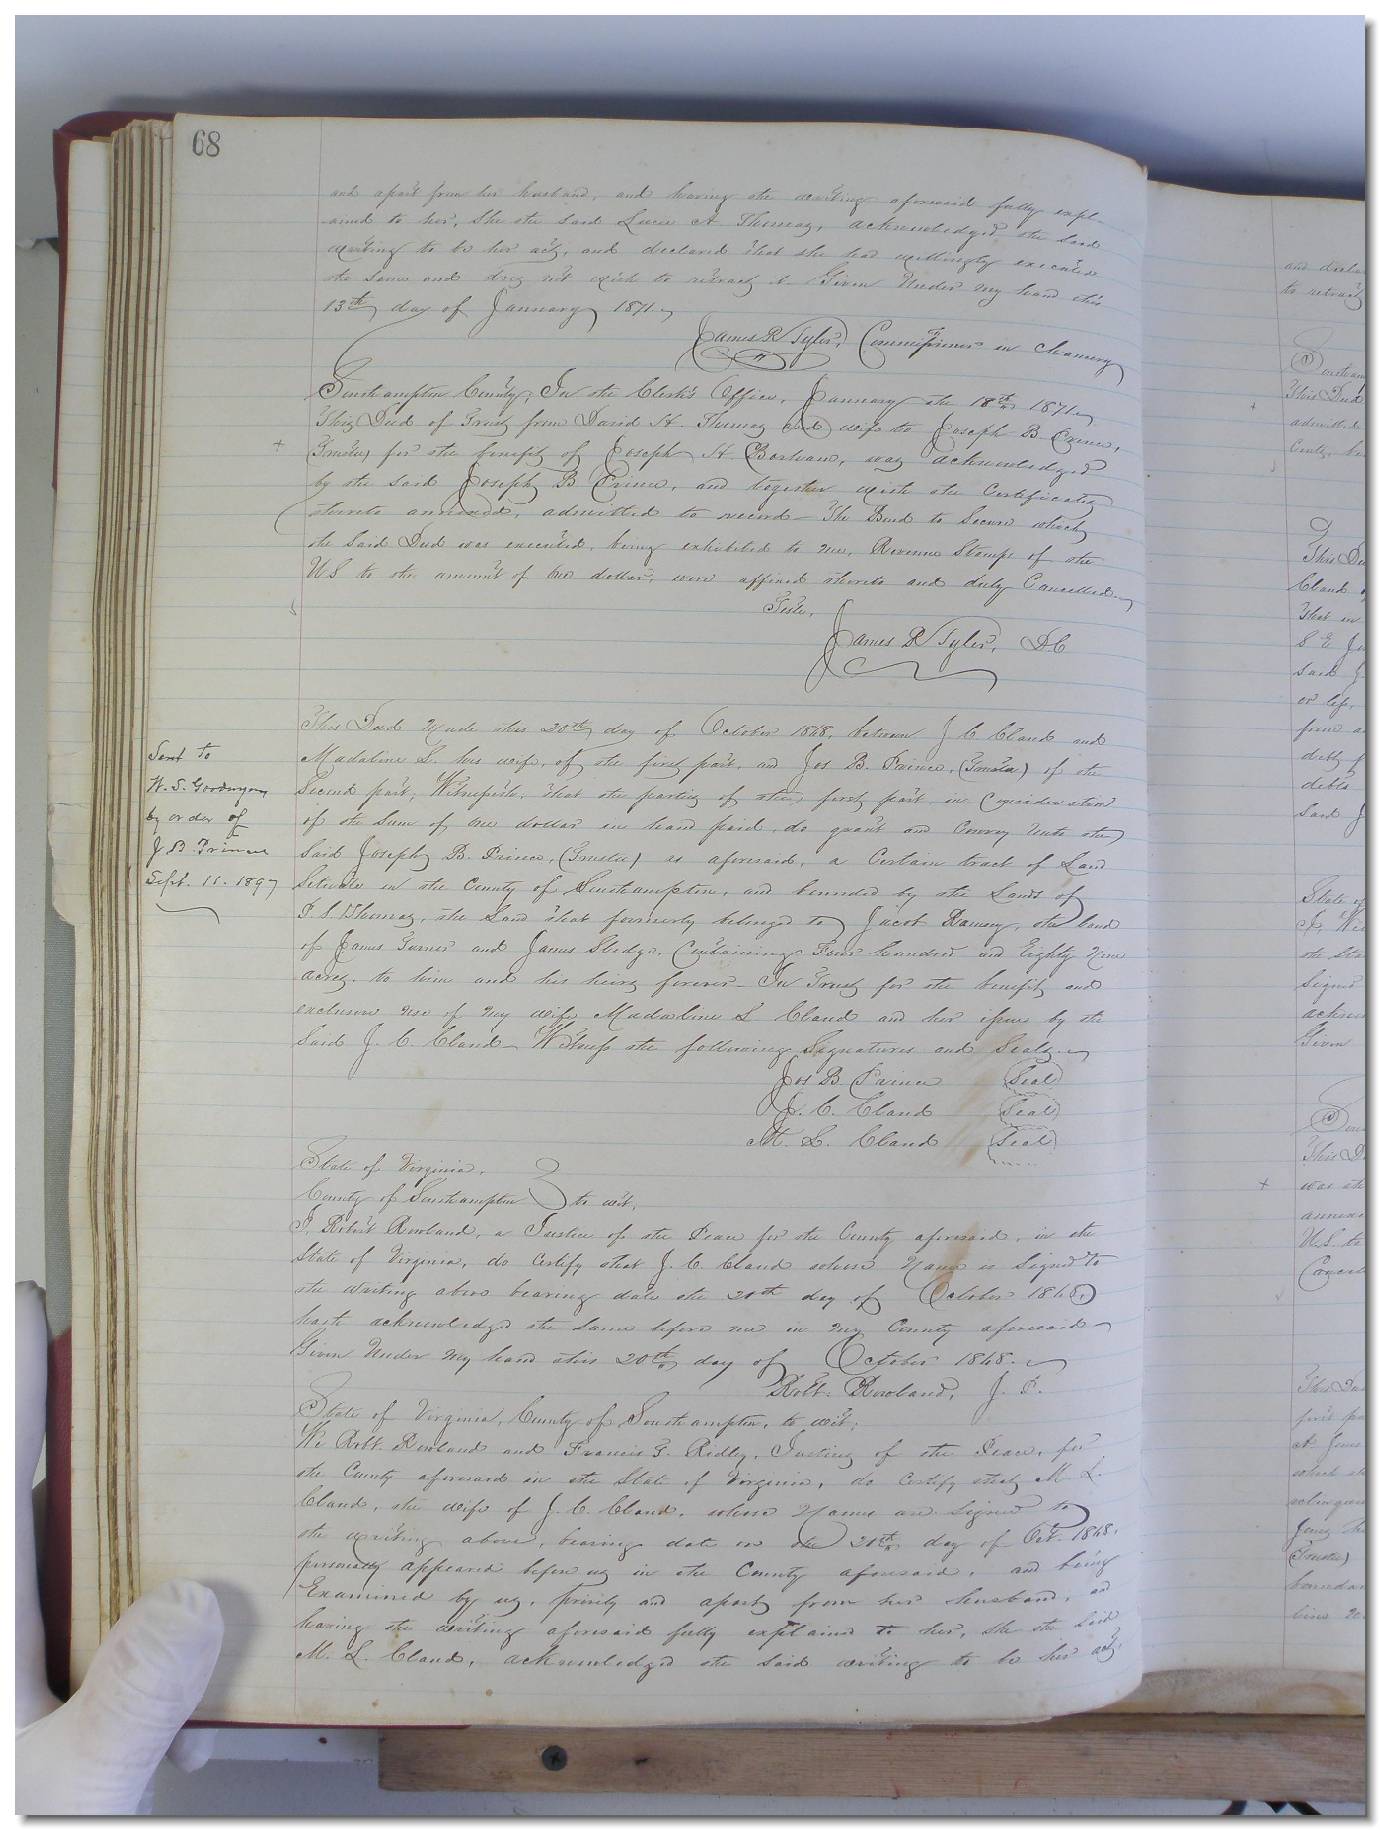 68
and apart from her husband, and having the writing aforesaid fully expl-
ained to her, She the said Lucie A Thomas, acknowledged the said
writing to be her act, and declared that she had willingly executed
the same and does not wish to retract it. Given Under my hand this
13th day of January 1871.
James R Tyler, Commissioner in Chancery
Southampton County, In the Clerk's Office, January the 18th 1871.
This Deed of Trust from David H. Thomas and wife to Joseph B. Prince,
(Trustee) for the benefit of Joseph H. was acknowledged
by the said Joseph B Prince, and together with the Certificates
thereto annexed, admitted to record - The Bond to Secure which
the Said Deed was executed, being exhibited to me, Revenue Stamps of the
US to the amount of One dollar, were affixed thereto and duly Cancelled.
Teste,
James R Tyler, DC
Sent to
W. S. Goodwyn
by order of
J. B. Prince
Sept. 11. 1897
This Deed Made this 20th day of October 1868, between J C Claud and
Madaline L. his wife, of the first part, and Jos B. Prince, (Trustee) of the
Second part, Witnesseth, that the parties of the first part in Consideration
of the Sum of One dollar in hand paid, do grant and Convey Unto the
Said Joseph B. Prince, (Trustee) as aforesaid, a Certain tract of Land
Situate in the County of Southampton, and bounded by the Lands of
Thomas, the Land that formerly belonged to Jacob the land
of James Turner and James Sledge, Containing Four hundred and Eighty Nine
acres. to him and his heirs forever - In Trust for the benefit and
exclusive use of my wife Madaline L Claud and her issue by the
Said J. C. Claud - Witness the following Signatures and Seals.
Jos B Prince (Seal)
J. C. Claud (Seal)
M. L. Claud (Seal)
State of Virginia,
County of Southampton to wit,
I, Robert Rowland, a Justice of the Peace for the County aforesaid, in the
State of Virginia, do Certify that J. C. Claud whose Name is Signed to
the writing above bearing date the 20th day of October 1868,
hath acknowledged the same before me in my County aforesaid
Given Under My hand this 20th day of October 1868.
Robt. Rowland, J. P.
State of Virginia, County of Southampton, to wit;
We Robt. Rowland and Francis Ridley, Justices of the Peace, for
the County aforesaid in the State of Virginia, do Certify that M L.
Claud, the wife of J. C. Claud, whose Names are Signed to
the writing above, bearing date on the 20th day of Oct. 1868,
personally appeared before us in the County aforesaid, and being
Examined by us, privily and apart from her husband, and
having the writing aforesaid fully explained to her, she the said
M. L. Claud, acknowledged the said writing to be her act,
to retract
This Deed
admitted
This De
Claud
that in
said J
or life,
debts
said J
State of
the Sta
Signed
Given
This D
was
annex
U.S. to
Cancel
first pa
which
(Trustee)